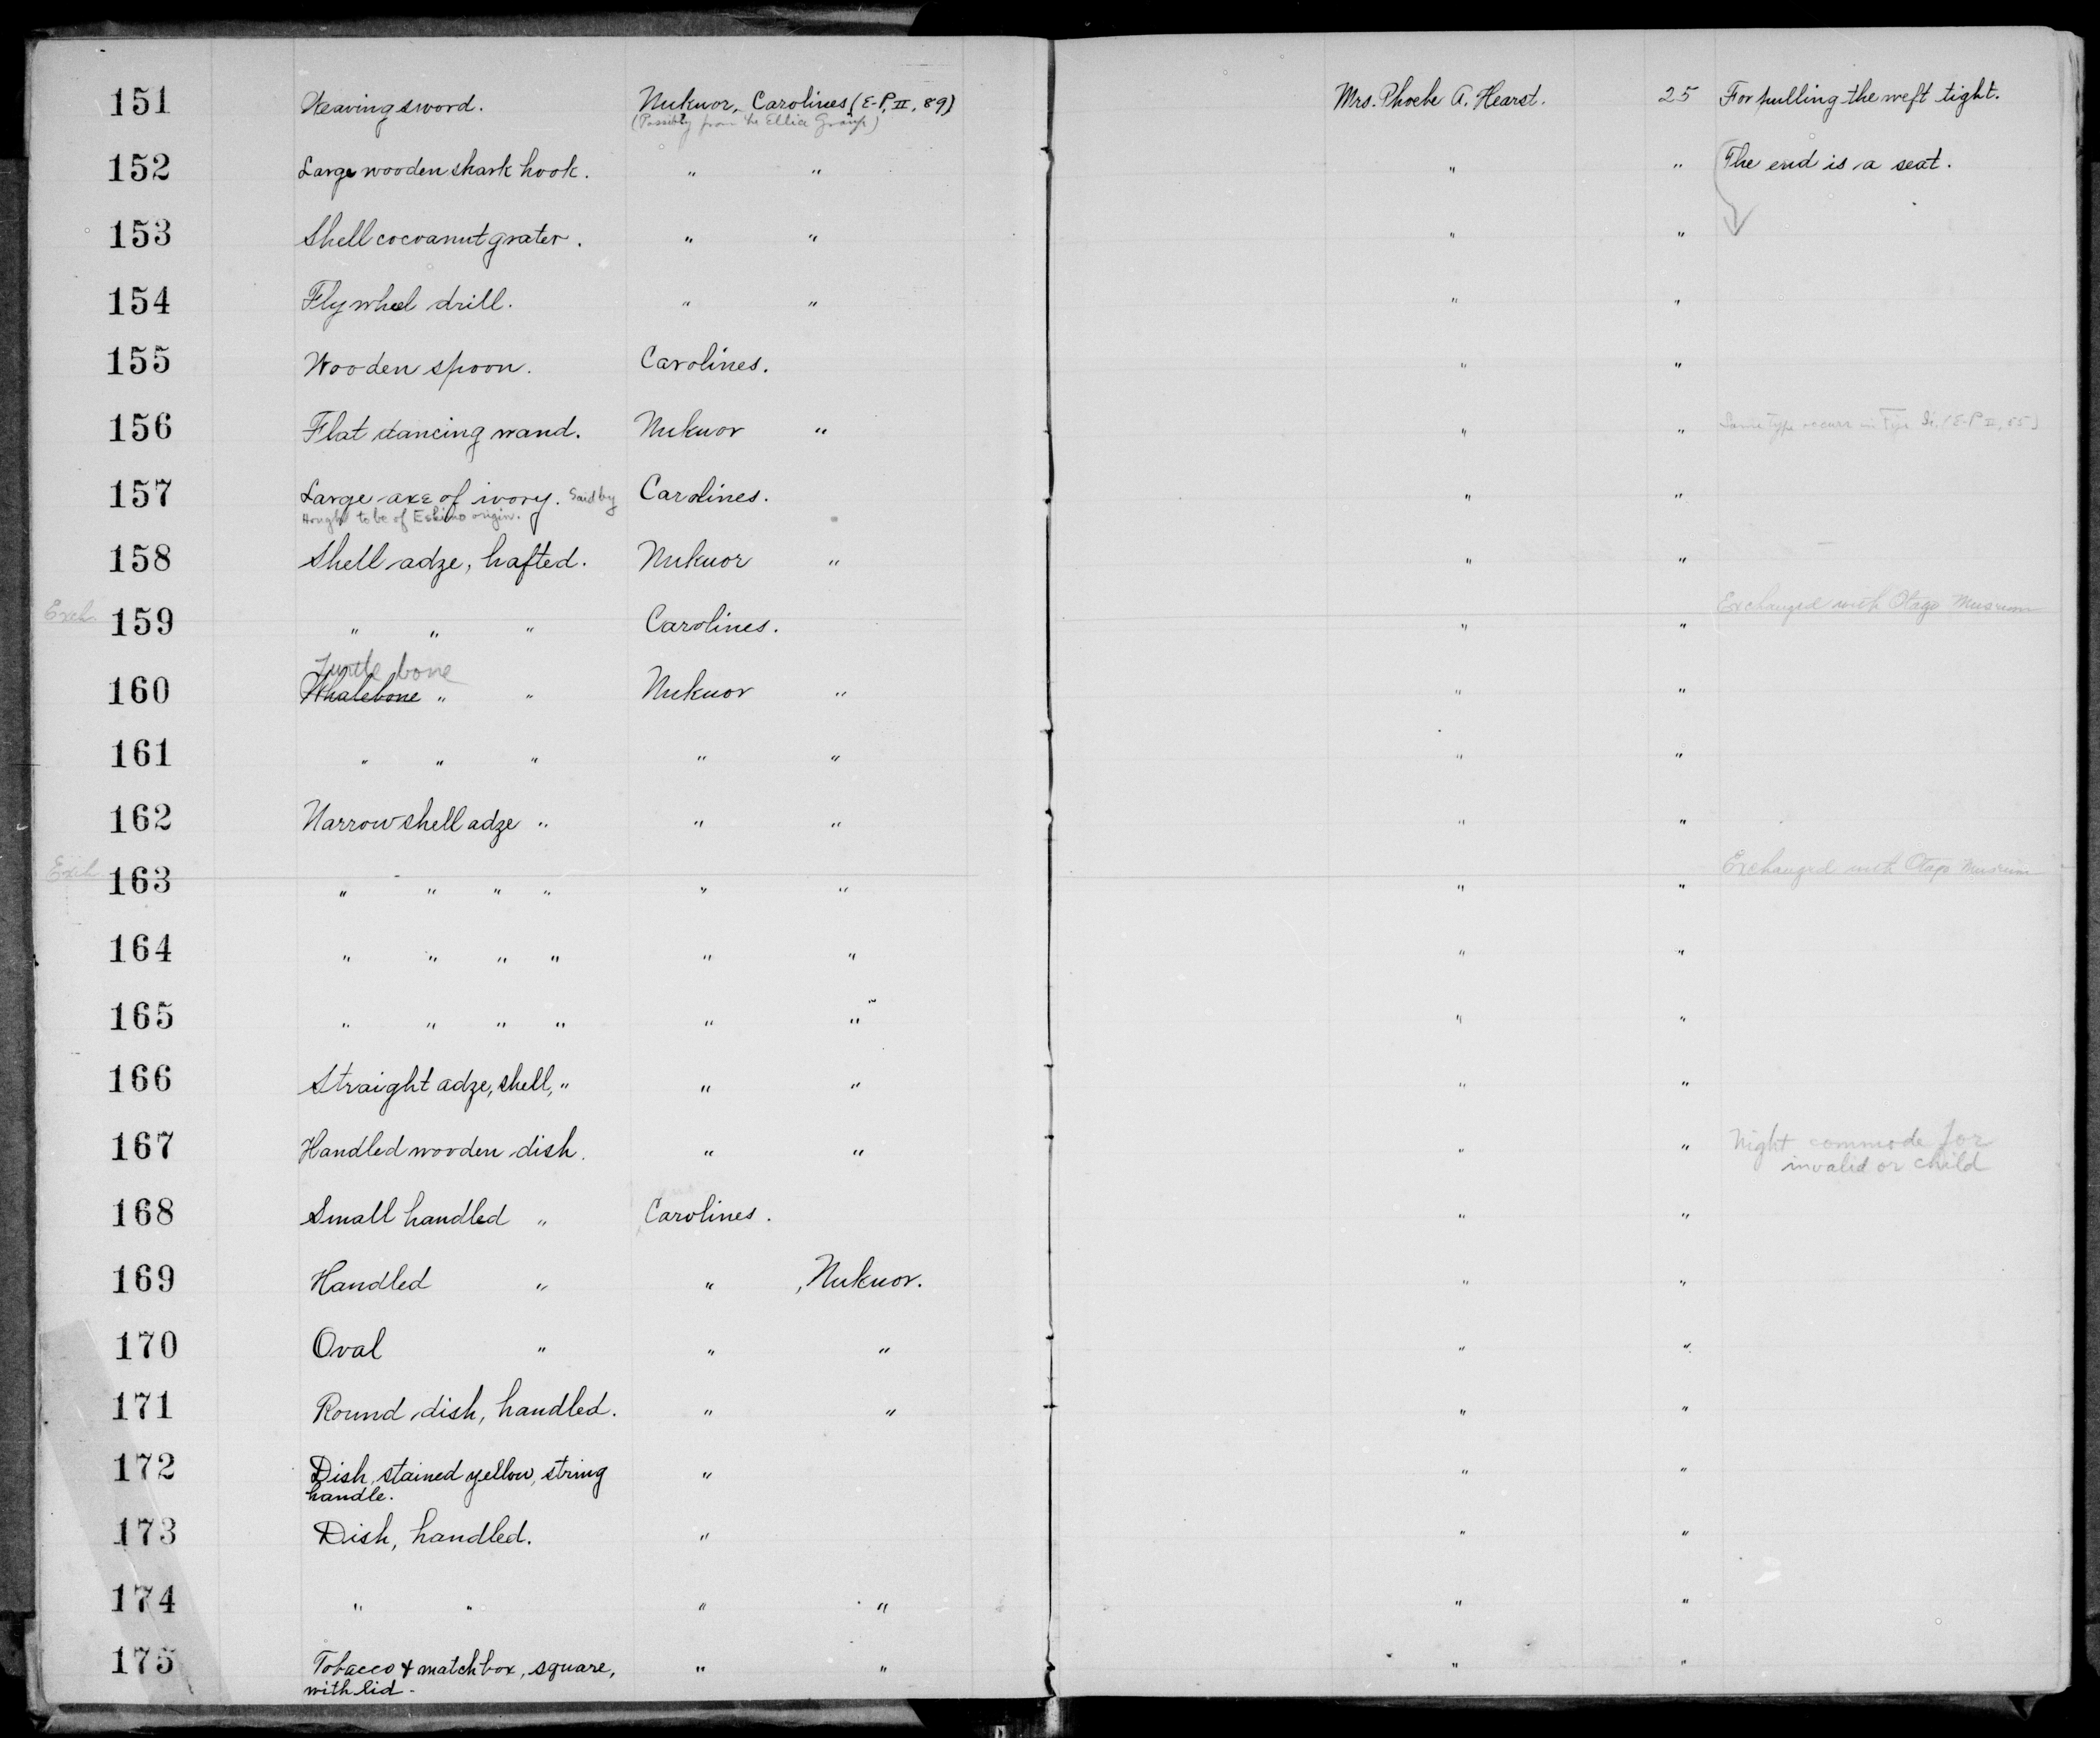 151 Weaving sword. Nukuor, Carolines (E-P, II, 89) Mrs. Phoebe A. Hearst. 25 For pulling the weft tight.
(Possibly from the Ellice Group)
152 Large wooden shark hook. " " " " The end is a seat.
153 Shell cocoanut grater. " " " "
154 Fly wheel drill. " " " "
155 Wooden spoon. Carolines. " "
156 Flat dancing wand. Nukuor " " " Same type occurs in (E-P II, 55)
157 Large axe of ivory. Said by Carolines. " "
Hough to be of Eskimo origin.
158 Shell adze, hafted. Nukuor " " "
Exch. 159 " " " Carolines. " " Exchanged with Otago Museum
Turtle bone
160 Whalebone " " Nukuor " " "
161 " " " " " " "
162 Narrow shell adze " " " " "
Exch. 163 " " " " " " " " Exchanged with Otago Museum
164 " " " " " " " "
165 " " " " " " " "
166 Straight adze, shell, " " " " "
167 Handled wooden dish. " " " " Night commode for
invalid or child
168 Small handled " Carolines. " "
169 Handled " " , Nukuor. " "
170 Oval " " " " "
171 Round dish, handled. " " " "
172 Dish, stained yellow, string " " "
handle.
173 Dish, handled. " " "
174 " " " " " "
175 Tobacco & matchbox, square, " " " "
with lid.